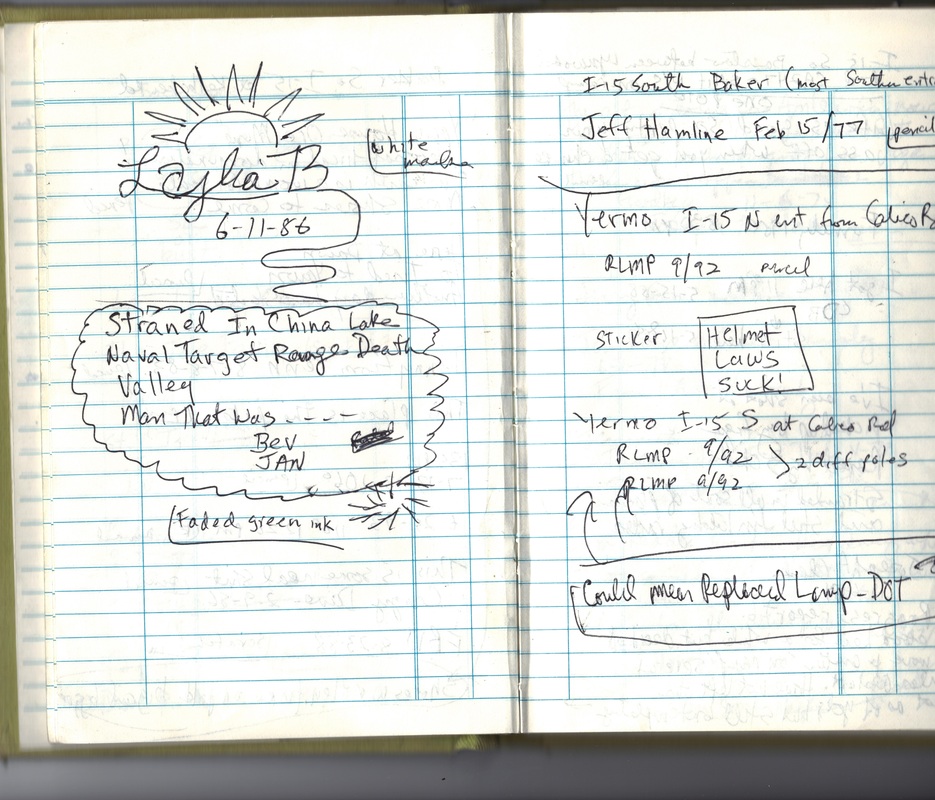 Layka B
white
6-11-86
Straned In China Lake
Naval Target Range Death
Valley
Man That Was - - - -
Bev
JAN
Faded green ink
I-15 South Baker (most Southn
Jeff Hamline Feb 15/77
pencil
Yermo I-15 N ent from Calico
RLMP 9/92
Sticker
Helmet
Laws
Suck!
Yermo I-15 S at Calico Rd
RLMP 9/92
2 diff poles
RLMP 9/92
Could mean Replaced Lamp-DOT